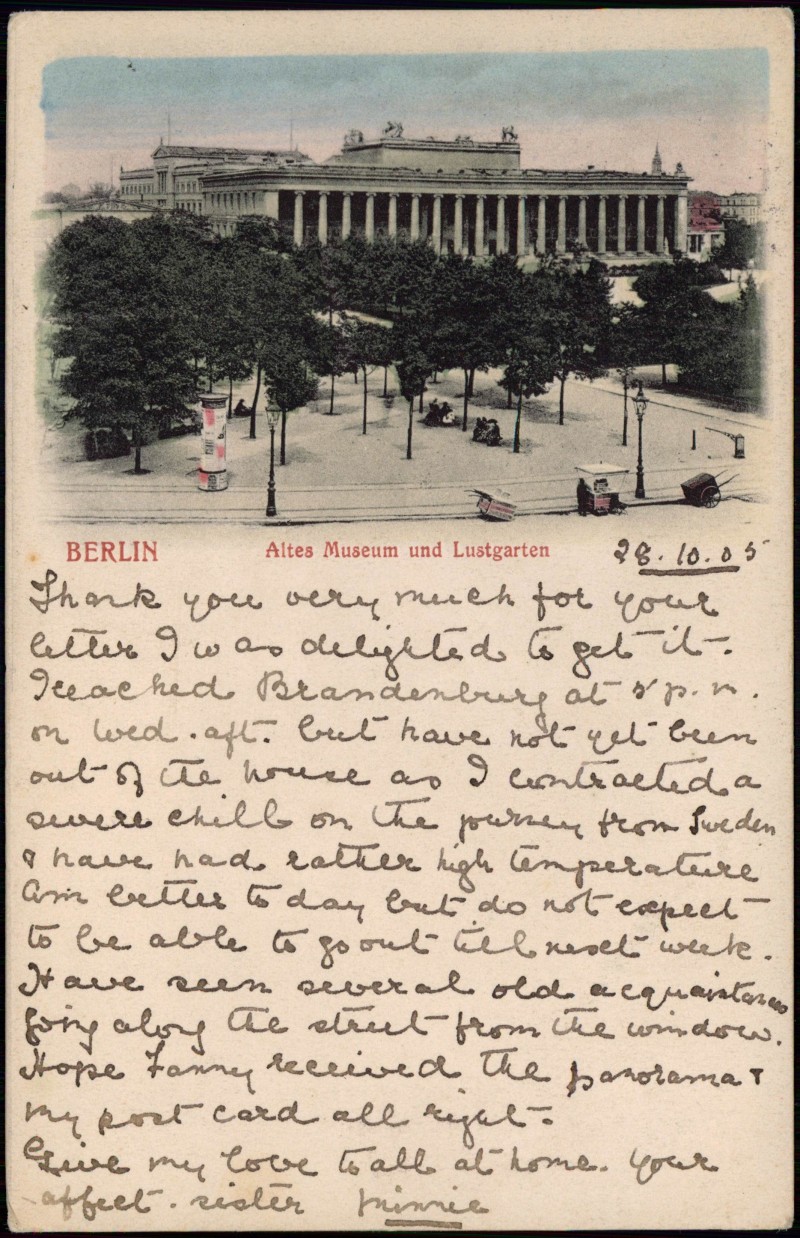 BERLIN Altes Museum und Lustgarten 28.10.05
Thank you very much for your
letter I was delighted to get it.
I reached Brandenburg at 5 p.m.
on Wed. aft. but have not yet been
out of the house as I contracted a
severe chill on the journey from Sweden
& have had rather high temperature
Am better to day but do not expect
to be able to go out till next week.
Have seen several old acquaintances
going along the street from the window.
Hope Fanny received the panorama &
my post card all right.
Give my love to all at home. Your
affect. sister Minnie